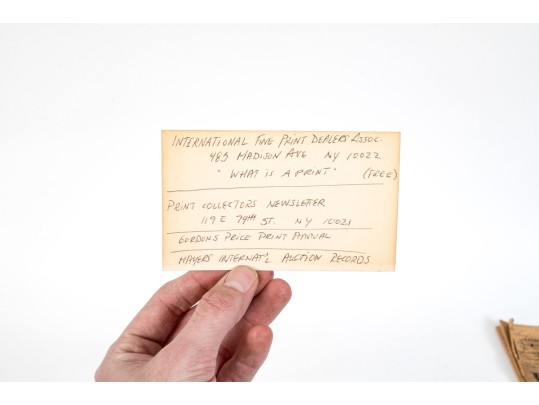 INTERNATIONAL FINE PRINT DEALERS ASSOC.
485 MADISON AVE NY 10022
"WHAT IS A PRINT" (FREE)
PRINT COLLECTORS NEWSLETTER
119 E 79TH ST. NY 10021
GORDONS PRICE PRINT ANNUAL
MAYERS INTERNAT'L AUCTION RECORDS